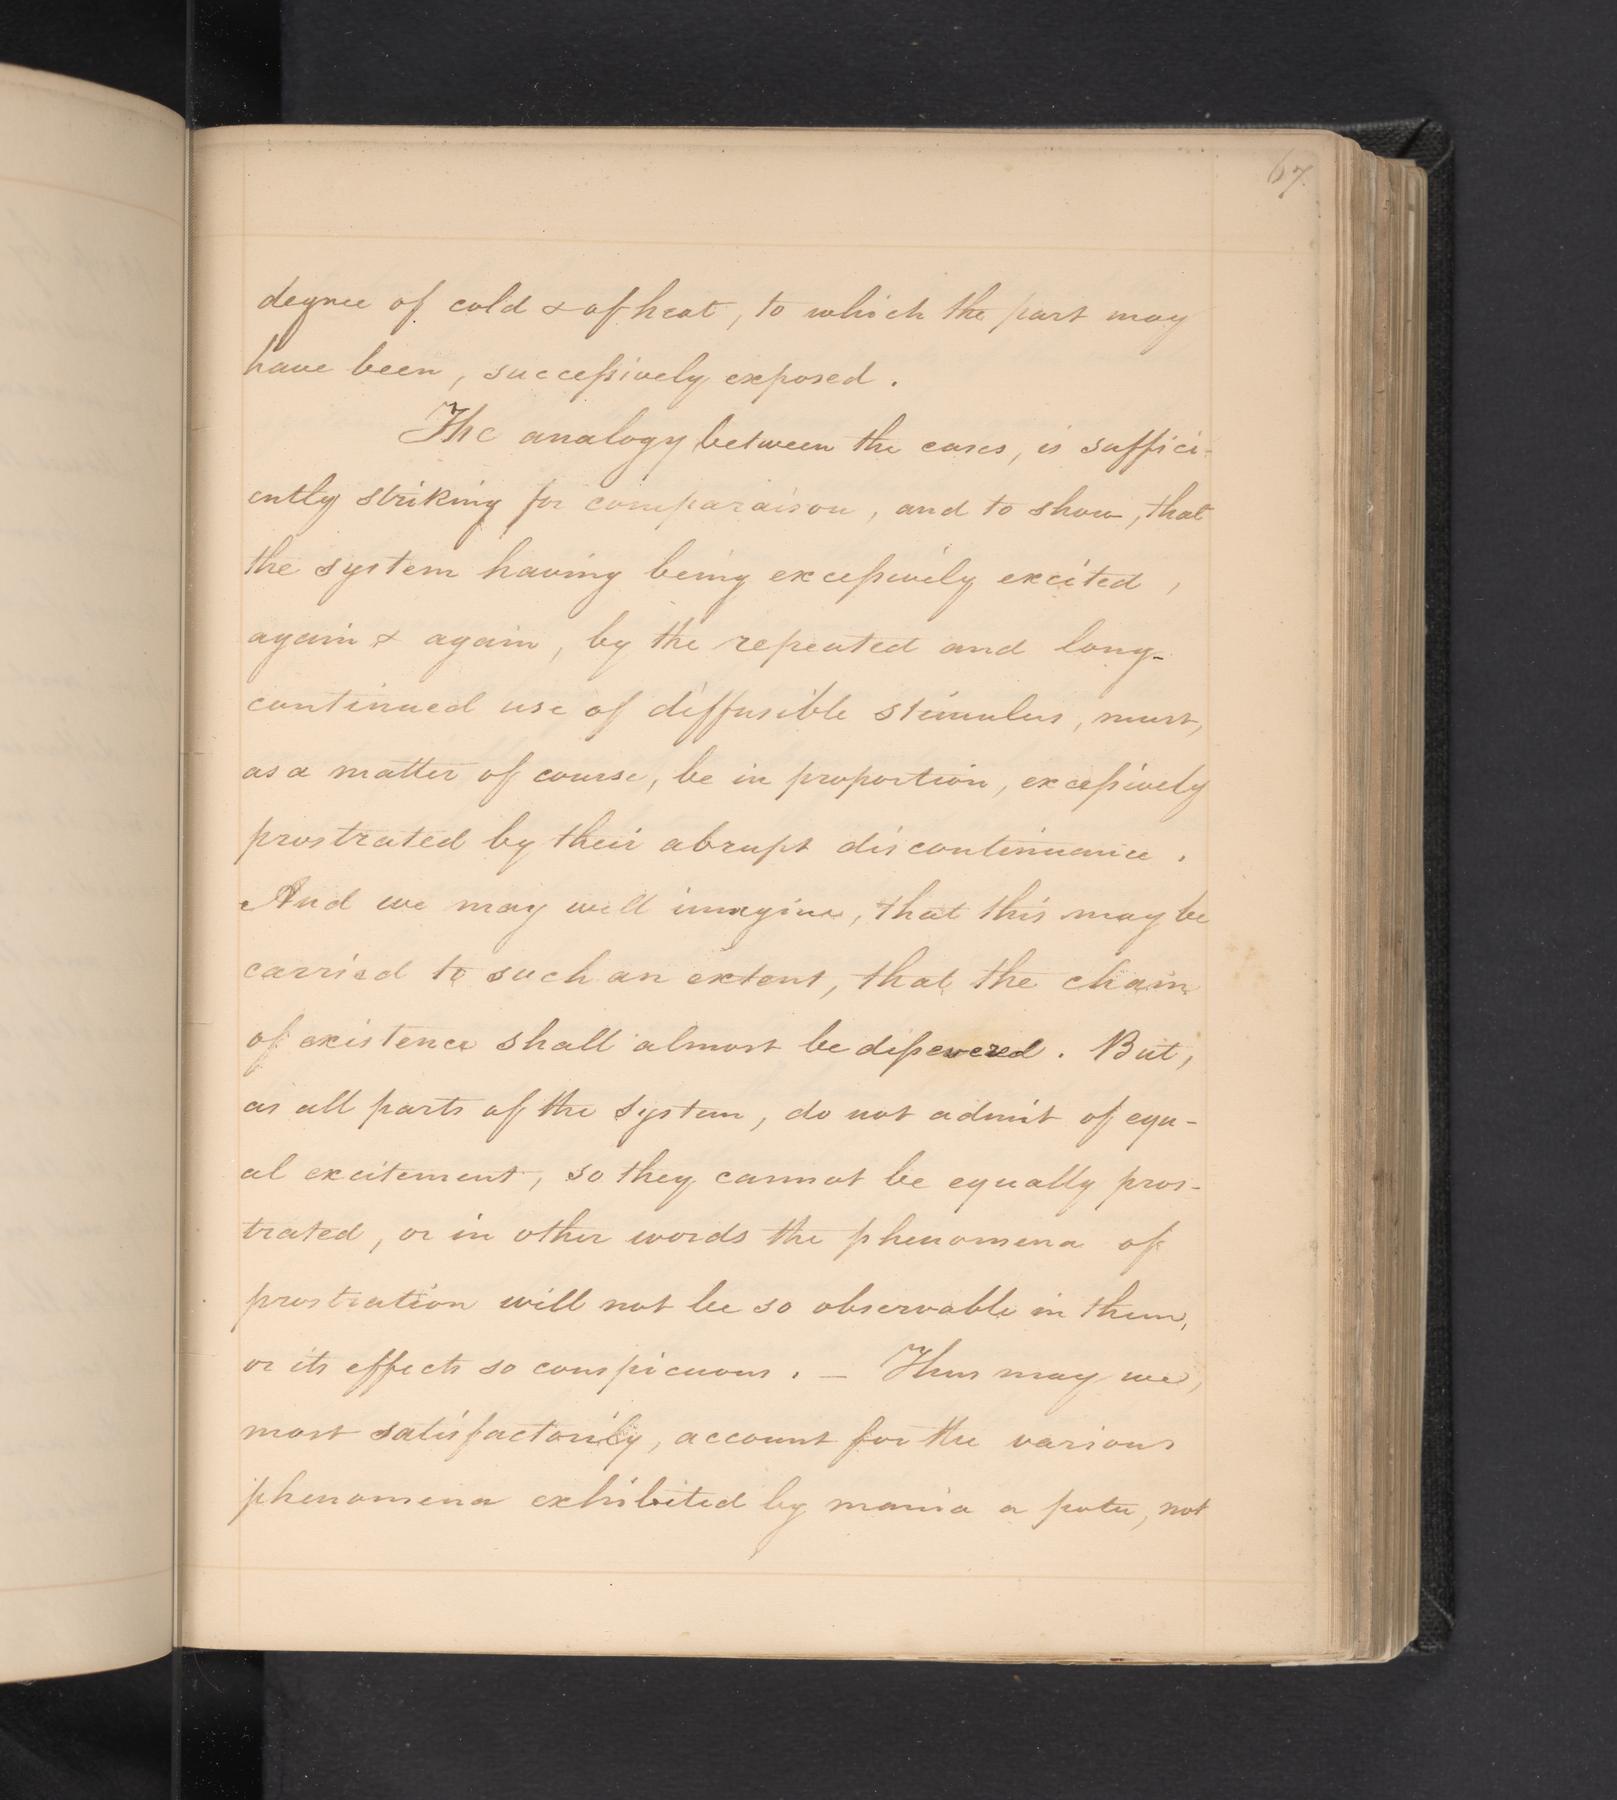 67.
degree of cold & of heat, to which the part may
have been, successively exposed.
The analogy between the cases, is suffici-
ently striking for comparaison, and to show, that
the system having being excessively excited,
again & again, by the repeated and long-
continued use of diffusible stimulus, must,
as a matter of course, be in proportion, excessively
prostrated by their abrupt discontinuance.
And we may well imagine, that this may be
carried to such an extent, that the chain
of existence shall almost be dissevered. But,
as all parts of the system, do not admit of equ-
al excitement, so they cannot be equally pros-
trated, or in other words the phenomena of
prostration will not be so observable in them,
or its effects so conspicuous. — Thus may we,
most satisfactorily, account for the various
phenomena exhibited by mania a potu, not